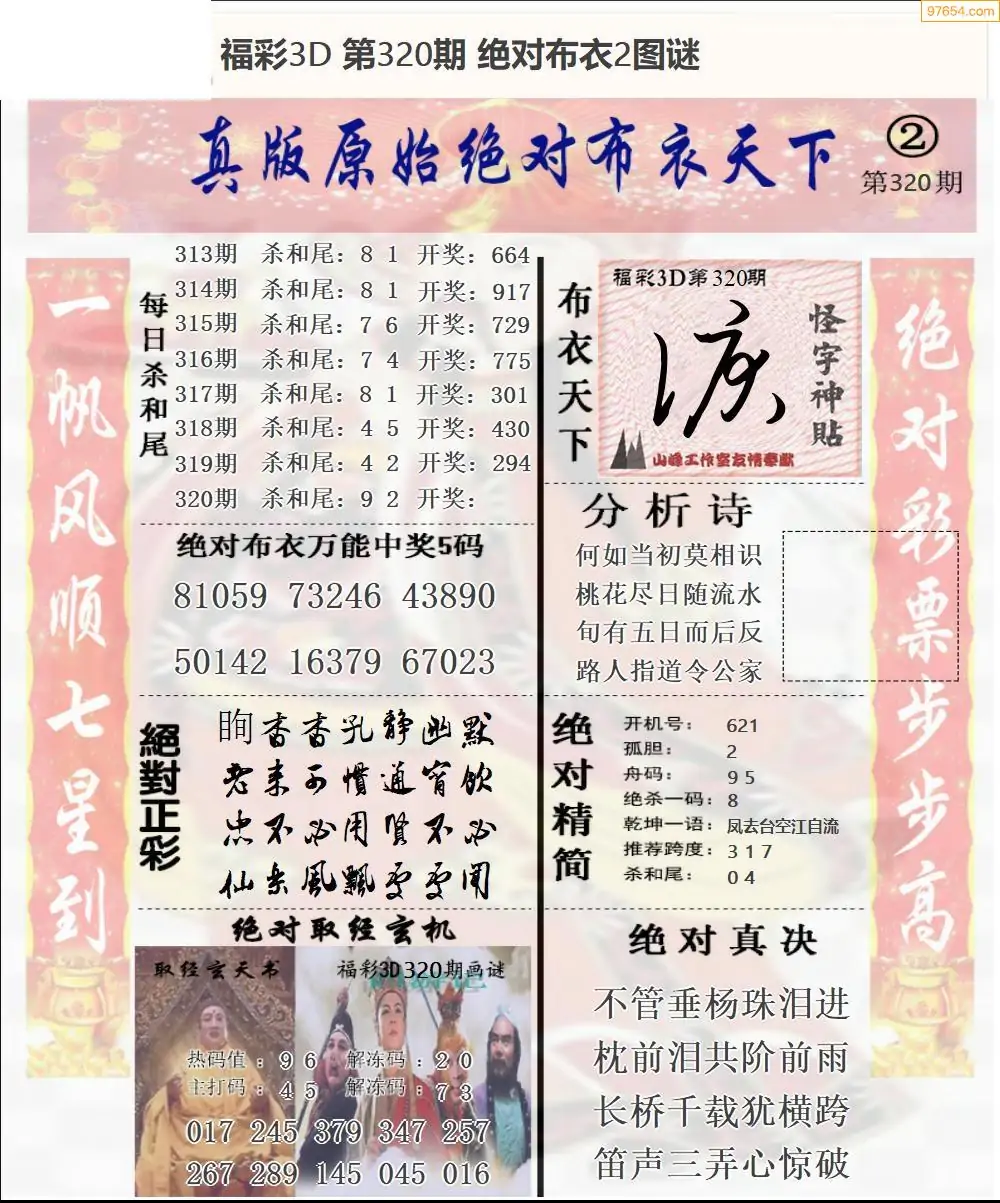 97654.com
福彩3D 第320期 绝对布衣2图谜
真版原始绝对布衣天下
②
第320期
一帆风顺七星到
每日杀和尾
313期 杀和尾：8 1 开奖：664
314期 杀和尾：8 1 开奖：917
315期 杀和尾：7 6 开奖：729
316期 杀和尾：7 4 开奖：775
317期 杀和尾：8 1 开奖：301
318期 杀和尾：4 5 开奖：430
319期 杀和尾：4 2 开奖：294
320期 杀和尾：9 2 开奖：
绝对布衣万能中奖5码
81059 73246 43890
50142 16379 67023
絕對正彩
眴杳杳孔静幽默
老来不惯通宵饮
忠不必用贤不必
仙乐风飘处处闻
绝对取经玄机
取经玄天书
福彩3D320期画谜
热码值：9 6 解冻码：2 0
主打码：4 5 解冻码：7 3
017 245 379 347 257
267 289 145 045 016
布衣天下
福彩3D第320期
怪字神貼
山峰工作室友情奉献
分析诗
何如当初莫相识
桃花尽日随流水
旬有五日而后反
路人指道令公家
绝对精简
开机号：621
孤胆：2
舟码：9 5
绝杀一码：8
乾坤一语：凤去台空江自流
推荐跨度：3 1 7
杀和尾：0 4
绝对真决
不管垂杨珠泪进
枕前泪共阶前雨
长桥千载犹横跨
笛声三弄心惊破
绝对彩票步步高